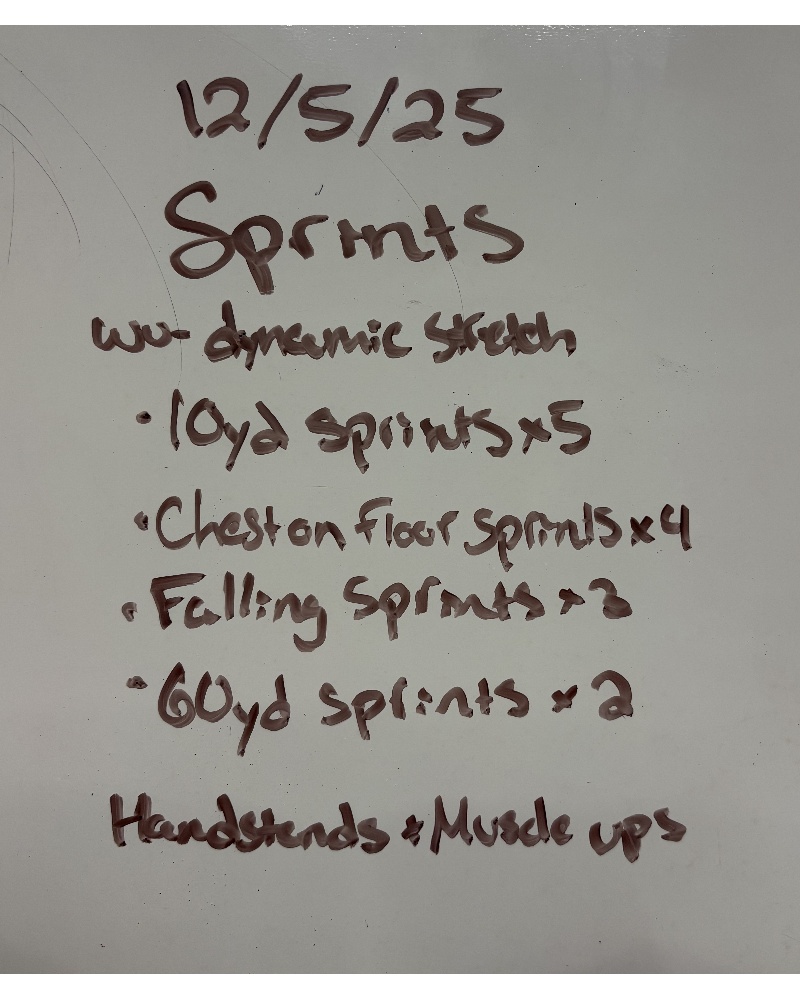 12/5/25
Sprints
wu- dynamic stretch
• 10yd sprints x5
• Chest on floor sprints x4
• Falling Sprints x3
• 60yd sprints x2
Handstands + Muscle ups